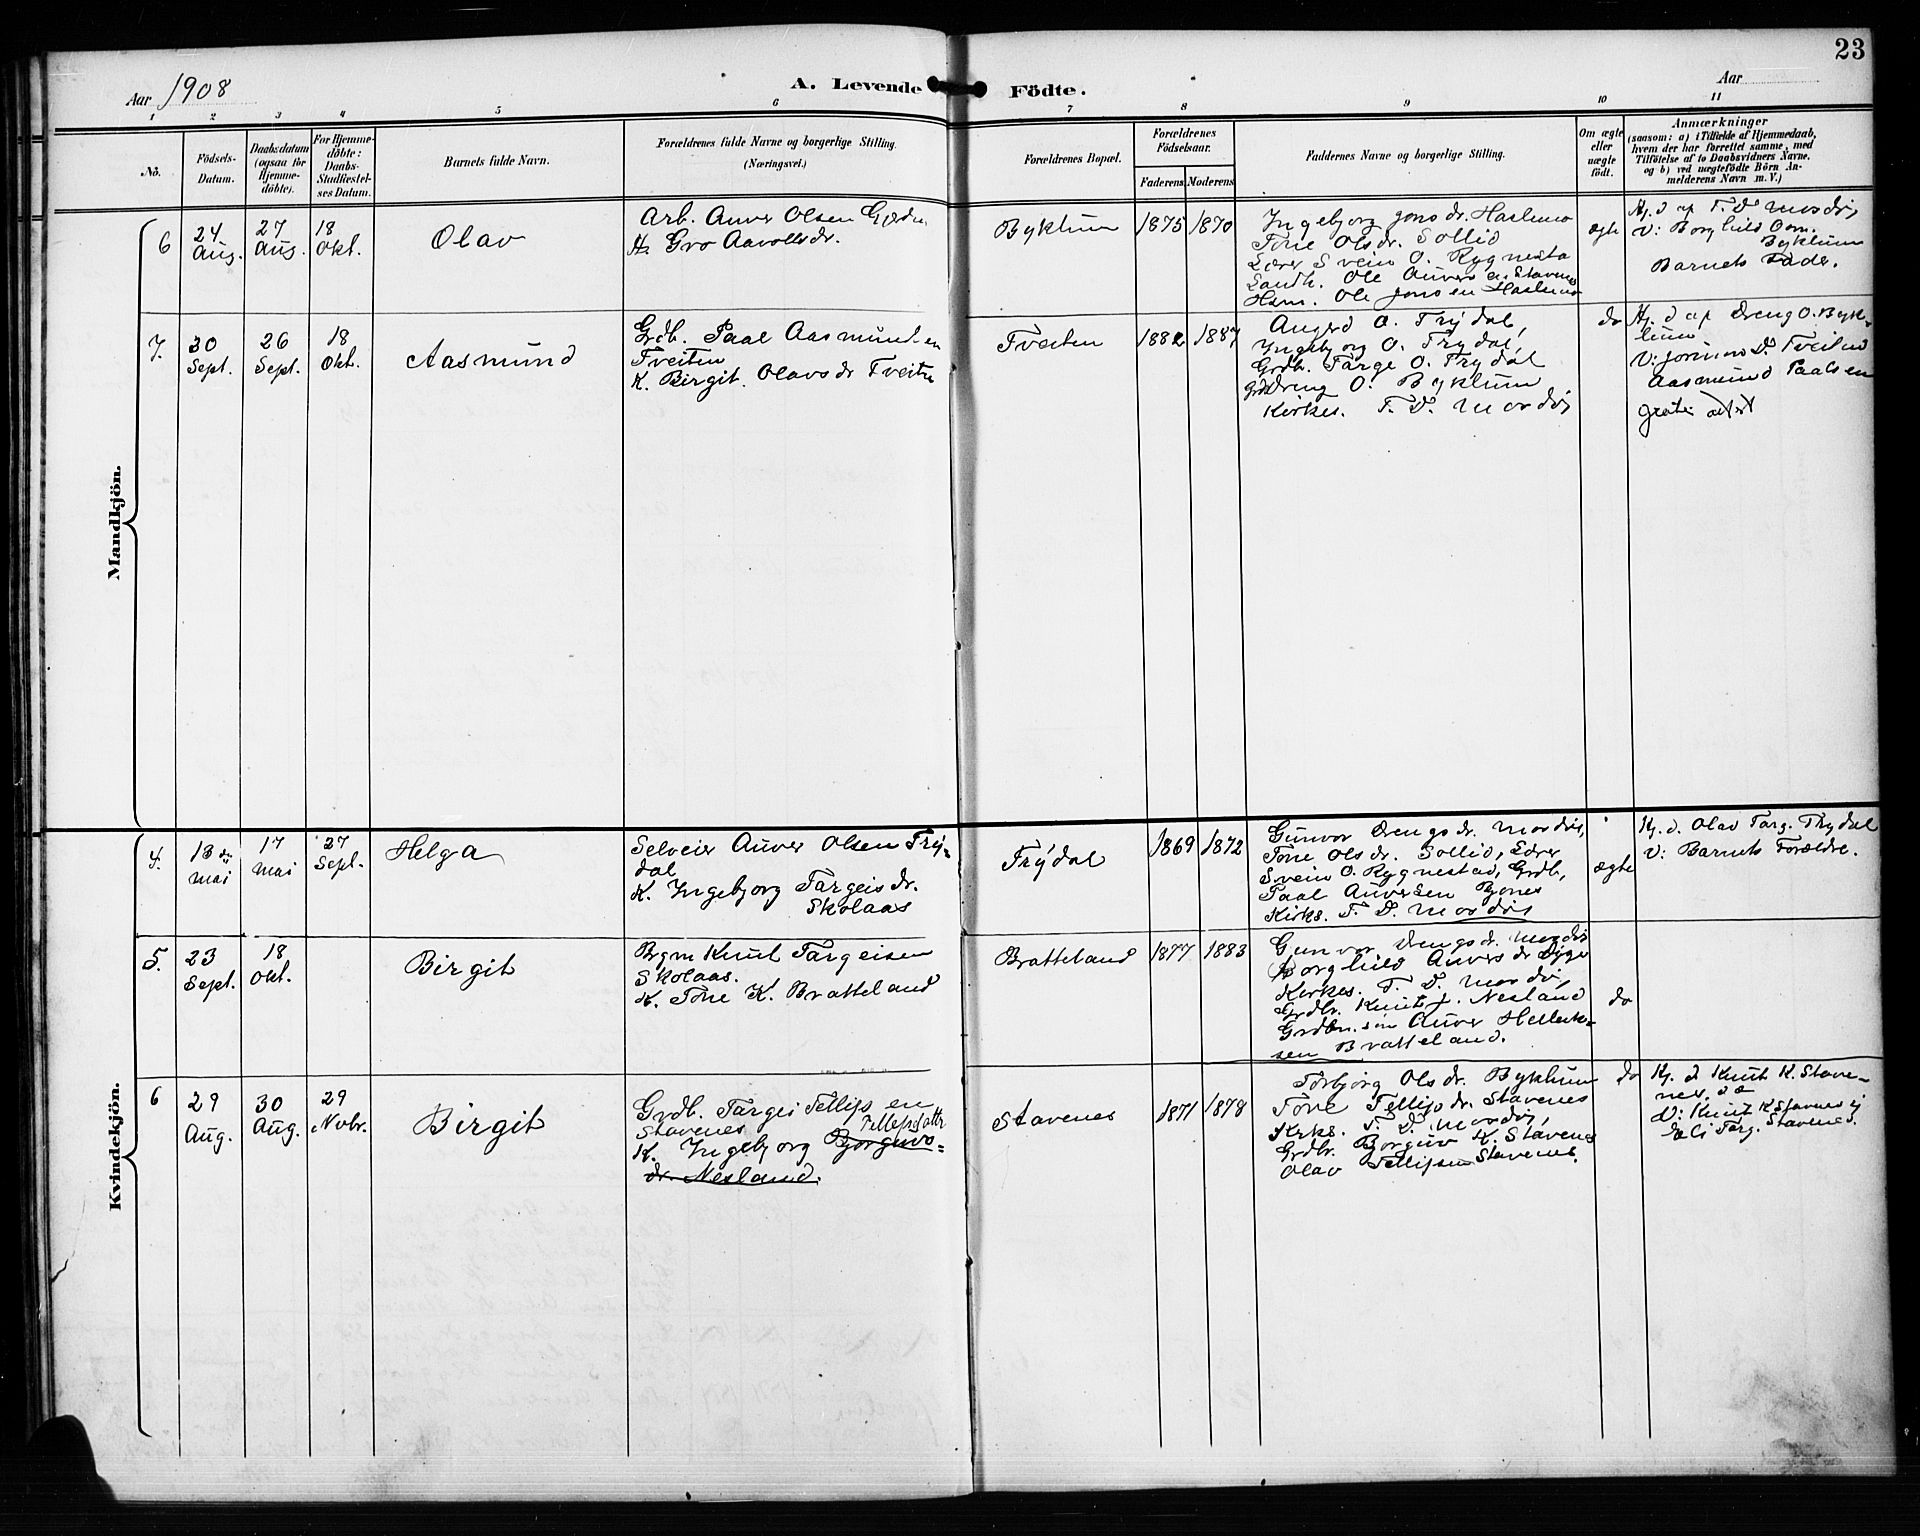 23
Aar 1908
A. Levende Födte.
Aar
1 2 3 4 5 6 7 8 9 10 11
No.
Födsels-
Datum.
Daabsdatum
(ogsaa for
Hjemme-
döbte).
For Hjemme-
döbte:
Daabs-
Stadfæstel-
ses Datum.
Barnets fulde Navn.
Forældrenes fulde Navne og borgerlige Stilling.
(Næringsvei.)
Forældrenes Bopæl.
Forældrenes
Födselsaar.
Faderens Moderens
Faddernes Navne og borgerlige Stilling.
Om ægte
eller
uægte
födt.
Anmærkninger
(saasom: a) i Tilfælde af Hjemmedaab,
hvem der har forrettet samme, med
Tilföielse af to Daabsvidners Navne,
og b) ved uægtefödte Börn An-
melderens Navn m. V.)
Mandkjön.
6
24
Aug.
27
Aug.
18
Okt.
Olav
Arb. Auver Olsen
H. Gro Aavolsdr.
Byklum
1875
1870
Ingebjorg Jonsdr.
Tone Olsdr. Sollid
Lærer Svein O. Rygnestad
Ole Auversen Stavenes
Ole Jonsen
ægte
Hj. d af T. D. Mosdöl
V: Borghild Com.
Byklum
Barnets Fader.
7.
30
Sept.
26
Sept.
18
Okt.
Aasmund
Grdb. Paal Aasmundsen
Tveiten
K. Birgit Olavsdr Tveiten
Tveiten
1882
1887
Angerd O. Trydal,
Ingebjorg O. Trydal,
Grdb. Targe O. Trydal
Dreng O. Byklum
Kirkes. T. D. Mosdöl
do
Hj. d af Dreng O. Byk-
lum
V: D. Tveiten
Aasmund Paalsen
gratis attest
Kvindekjön.
4.
13de
Mai
17
Mai
27
Sept.
Helga
Selveier Auver Olsen Try-
dal
K. Ingebjorg Targeisdr.
Skolaas
Trydal
1869
1872
Gunvor Drengsdr. Mosdöl,
Tone Olsdr. Sollid, Lærer
Svein O. Rygnestad, Grdb.
Paal Auversen Bjones
Kirks. T. D. Mosdöl
ægte
Hj. d. Olav Targ. Trydal
V: Barnets Forældre.
5.
23
Sept.
18
Okt.
Birgit
Brgm Knut Targeisen
Skolaas.
K. Tone K. Bratteland
Bratteland
1877
1883
Gunvor Drengsdr. Mosdöl
Borghild Auversdr
Kirkes. T. D. Mosdöl
Grdbr. Knut J. Nesland
Grdbr.sön Auver Hellek-
sen Bratteland.
do
6
29
Aug.
30
Aug.
29
Novbr.
Birgit
Grdb. Targei Tellefsen
Stavenes
Tellefsdattr
K. Ingebjorg Bjorguvs-
dr. Nesland.
Stavenes
1871
1878
Torbjörg Olsdr. Byklum
Tone Tellefsdr. Stavenes
Kirks. T. D. Mosdöl,
Grdbr. Borguv K. Stavenes
Olav Tellefsen Stavenes.
do
Hj. d Knut K. Stave-
nes.
V: Knut K Stavenes
Targ. Stavenes.